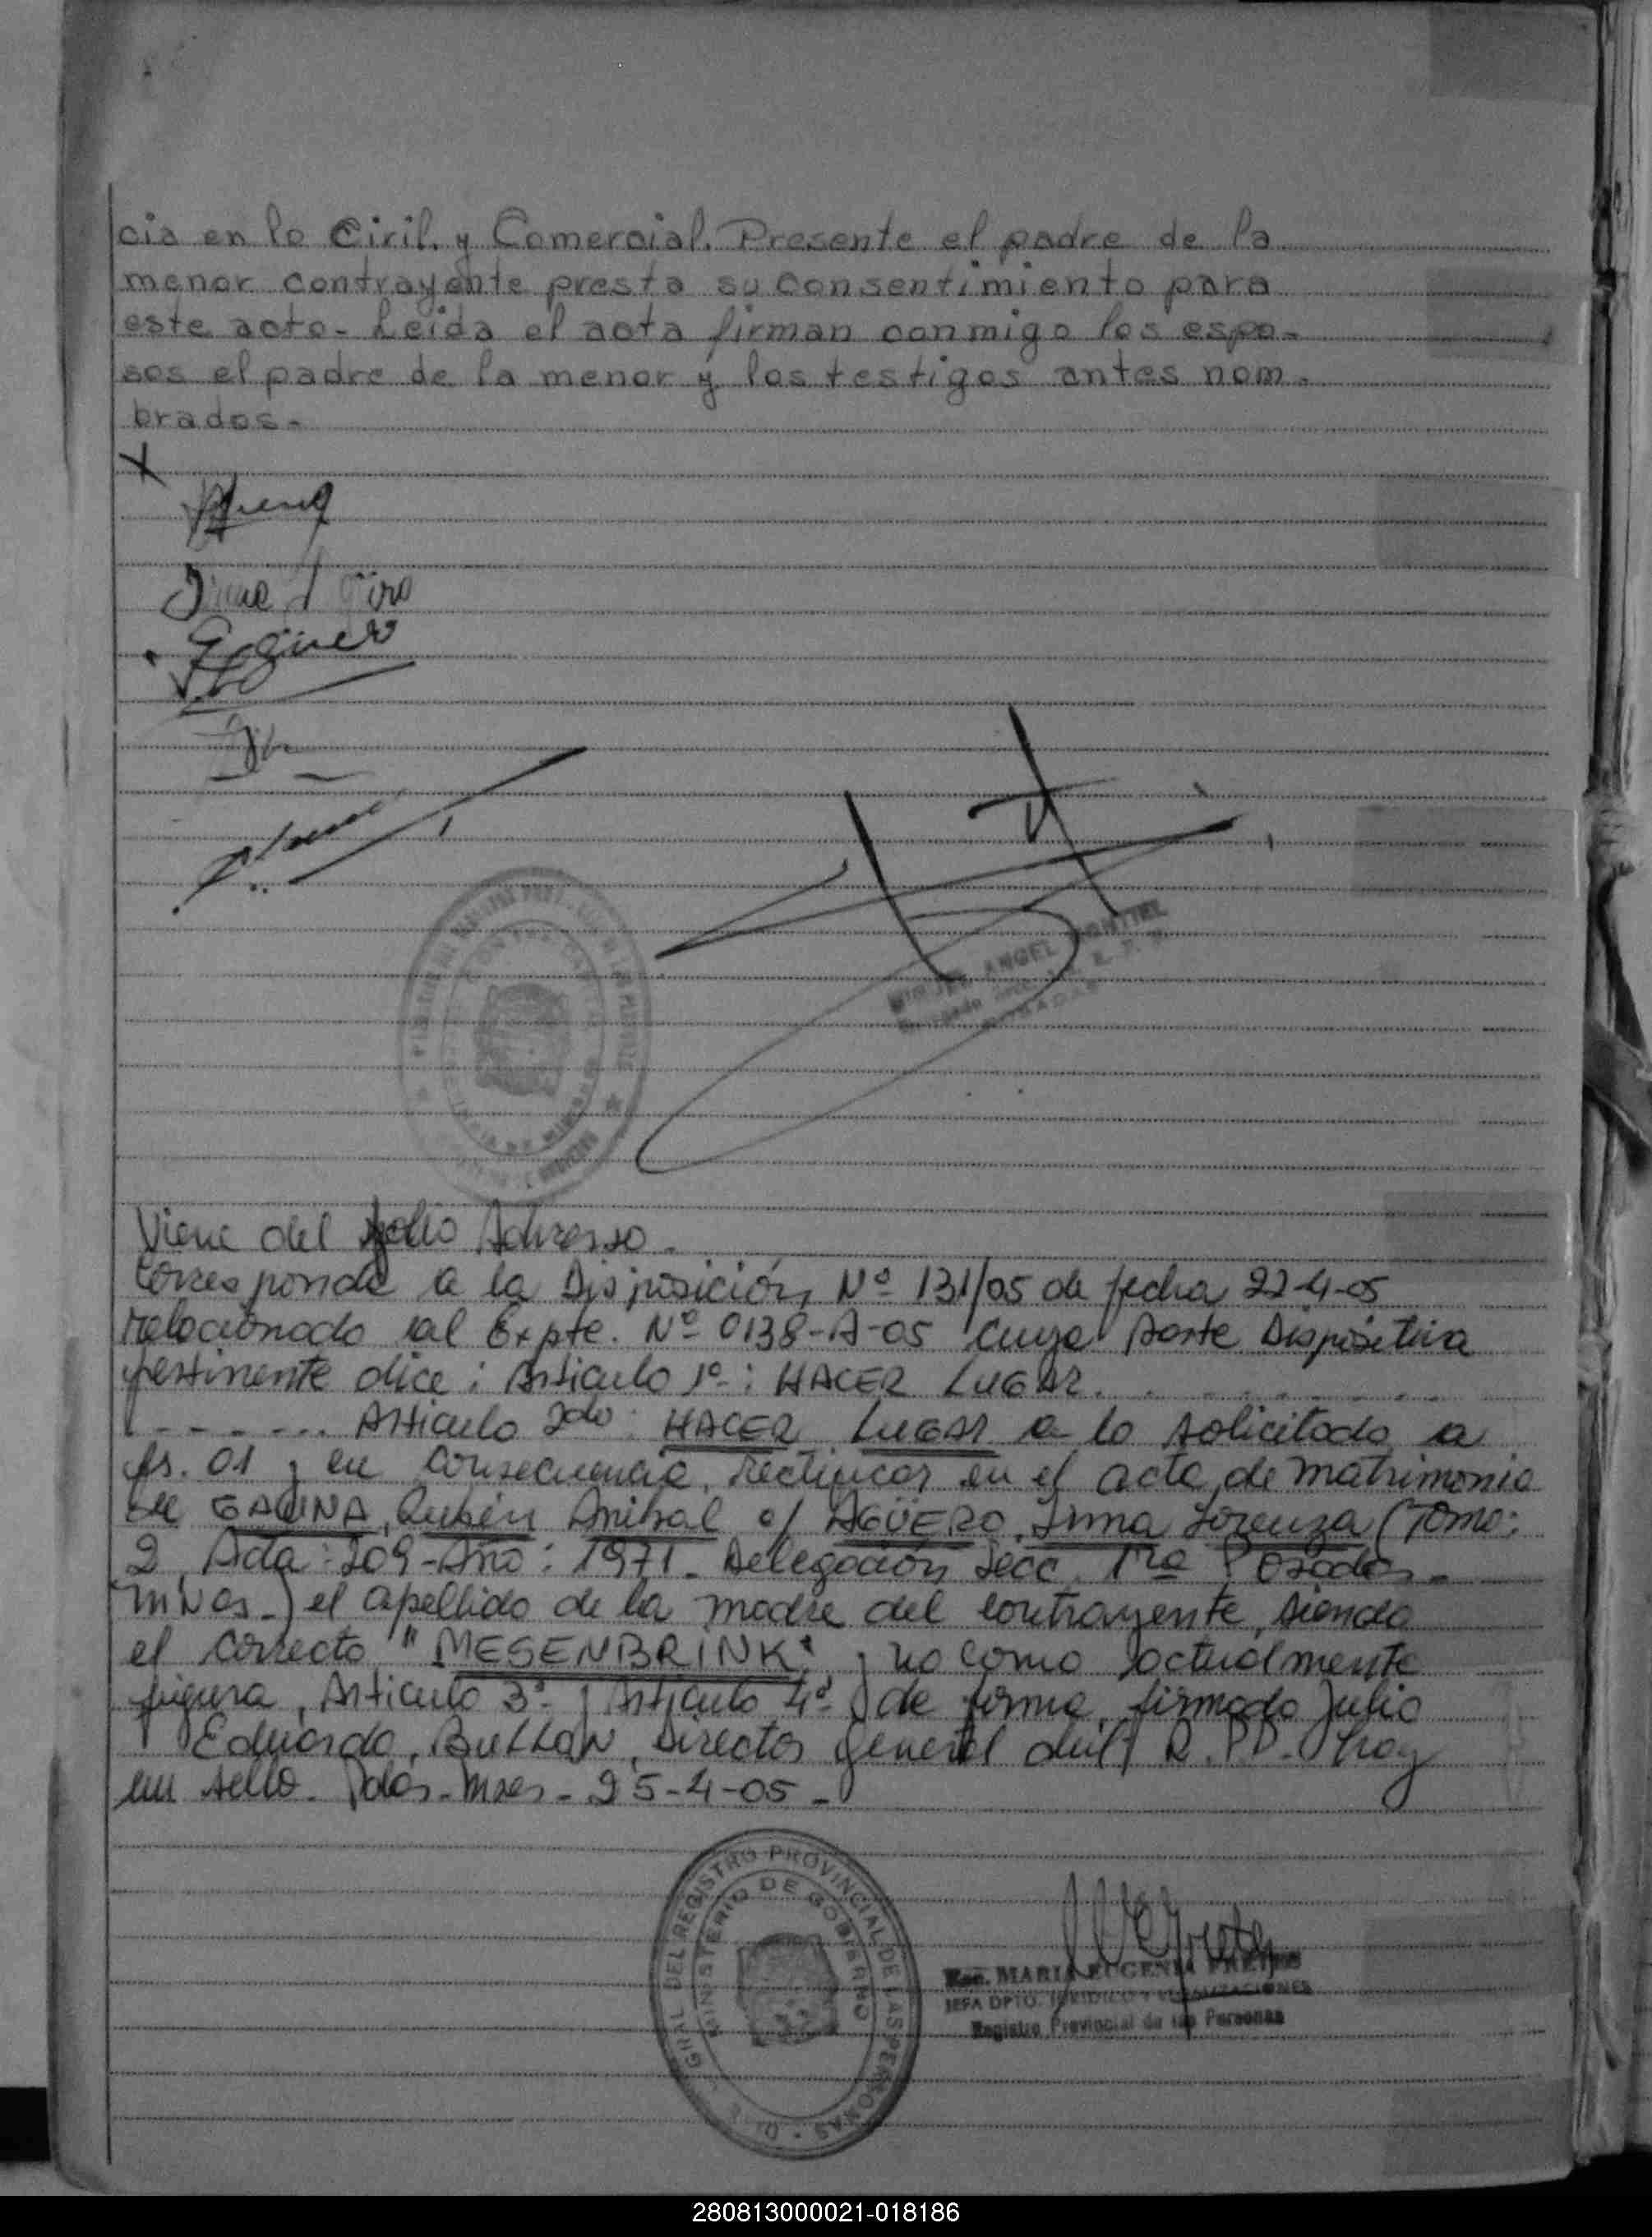 cia en lo Civil. y Comercial. Presente el padre de la
menor contrayente presta su consentimiento para
este acto- Leida el acta firman conmigo los espo-
sos el padre de la menor y los testigos antes nom-
brados-
X
ANGEL MONTIEL
Viene del folio Adverso.
Corresponde a la Disposición Nº 131/05 de fecha 22-4-05
relacionado al Expte. Nº 0138-A-05 cuya Parte Dispositiva
pertinente dice: Articulo 1º: HACER LUGAR. . . . . . . . .
- - - - ... Articulo 2do: HACER LUGAR a lo solicitado a
fs. 01 y en consecuencia, rectificar en el acta de matrimonio
de GALINA, Rubén Anibal c/ AGÜERO, Irma Lorenza (Tomo:
2 Acta: 209-Año: 1971. Delegación Secc. 1ra Posadas-
Mnes-) el apellido de la madre del contrayente, siendo
el correcto "MESENBRINK" y no como actualmente
figura, Articulo 3º y Articulo 4º de forma, firmado Julio
Eduardo, Director General del R.PP. Hay
un sello. Pdas-Mnes- 25-4-05-
GRAL. DEL REGISTRO PROVINCIAL DE LAS PERSONAS
MINISTERIO DE GOBIERNO
Esc. MARIA EUGENIA FREYTES
JEFA DPTO. JURIDICO Y LEGALIZACIONES
Registro Provincial de las Personas
280813000021-018186